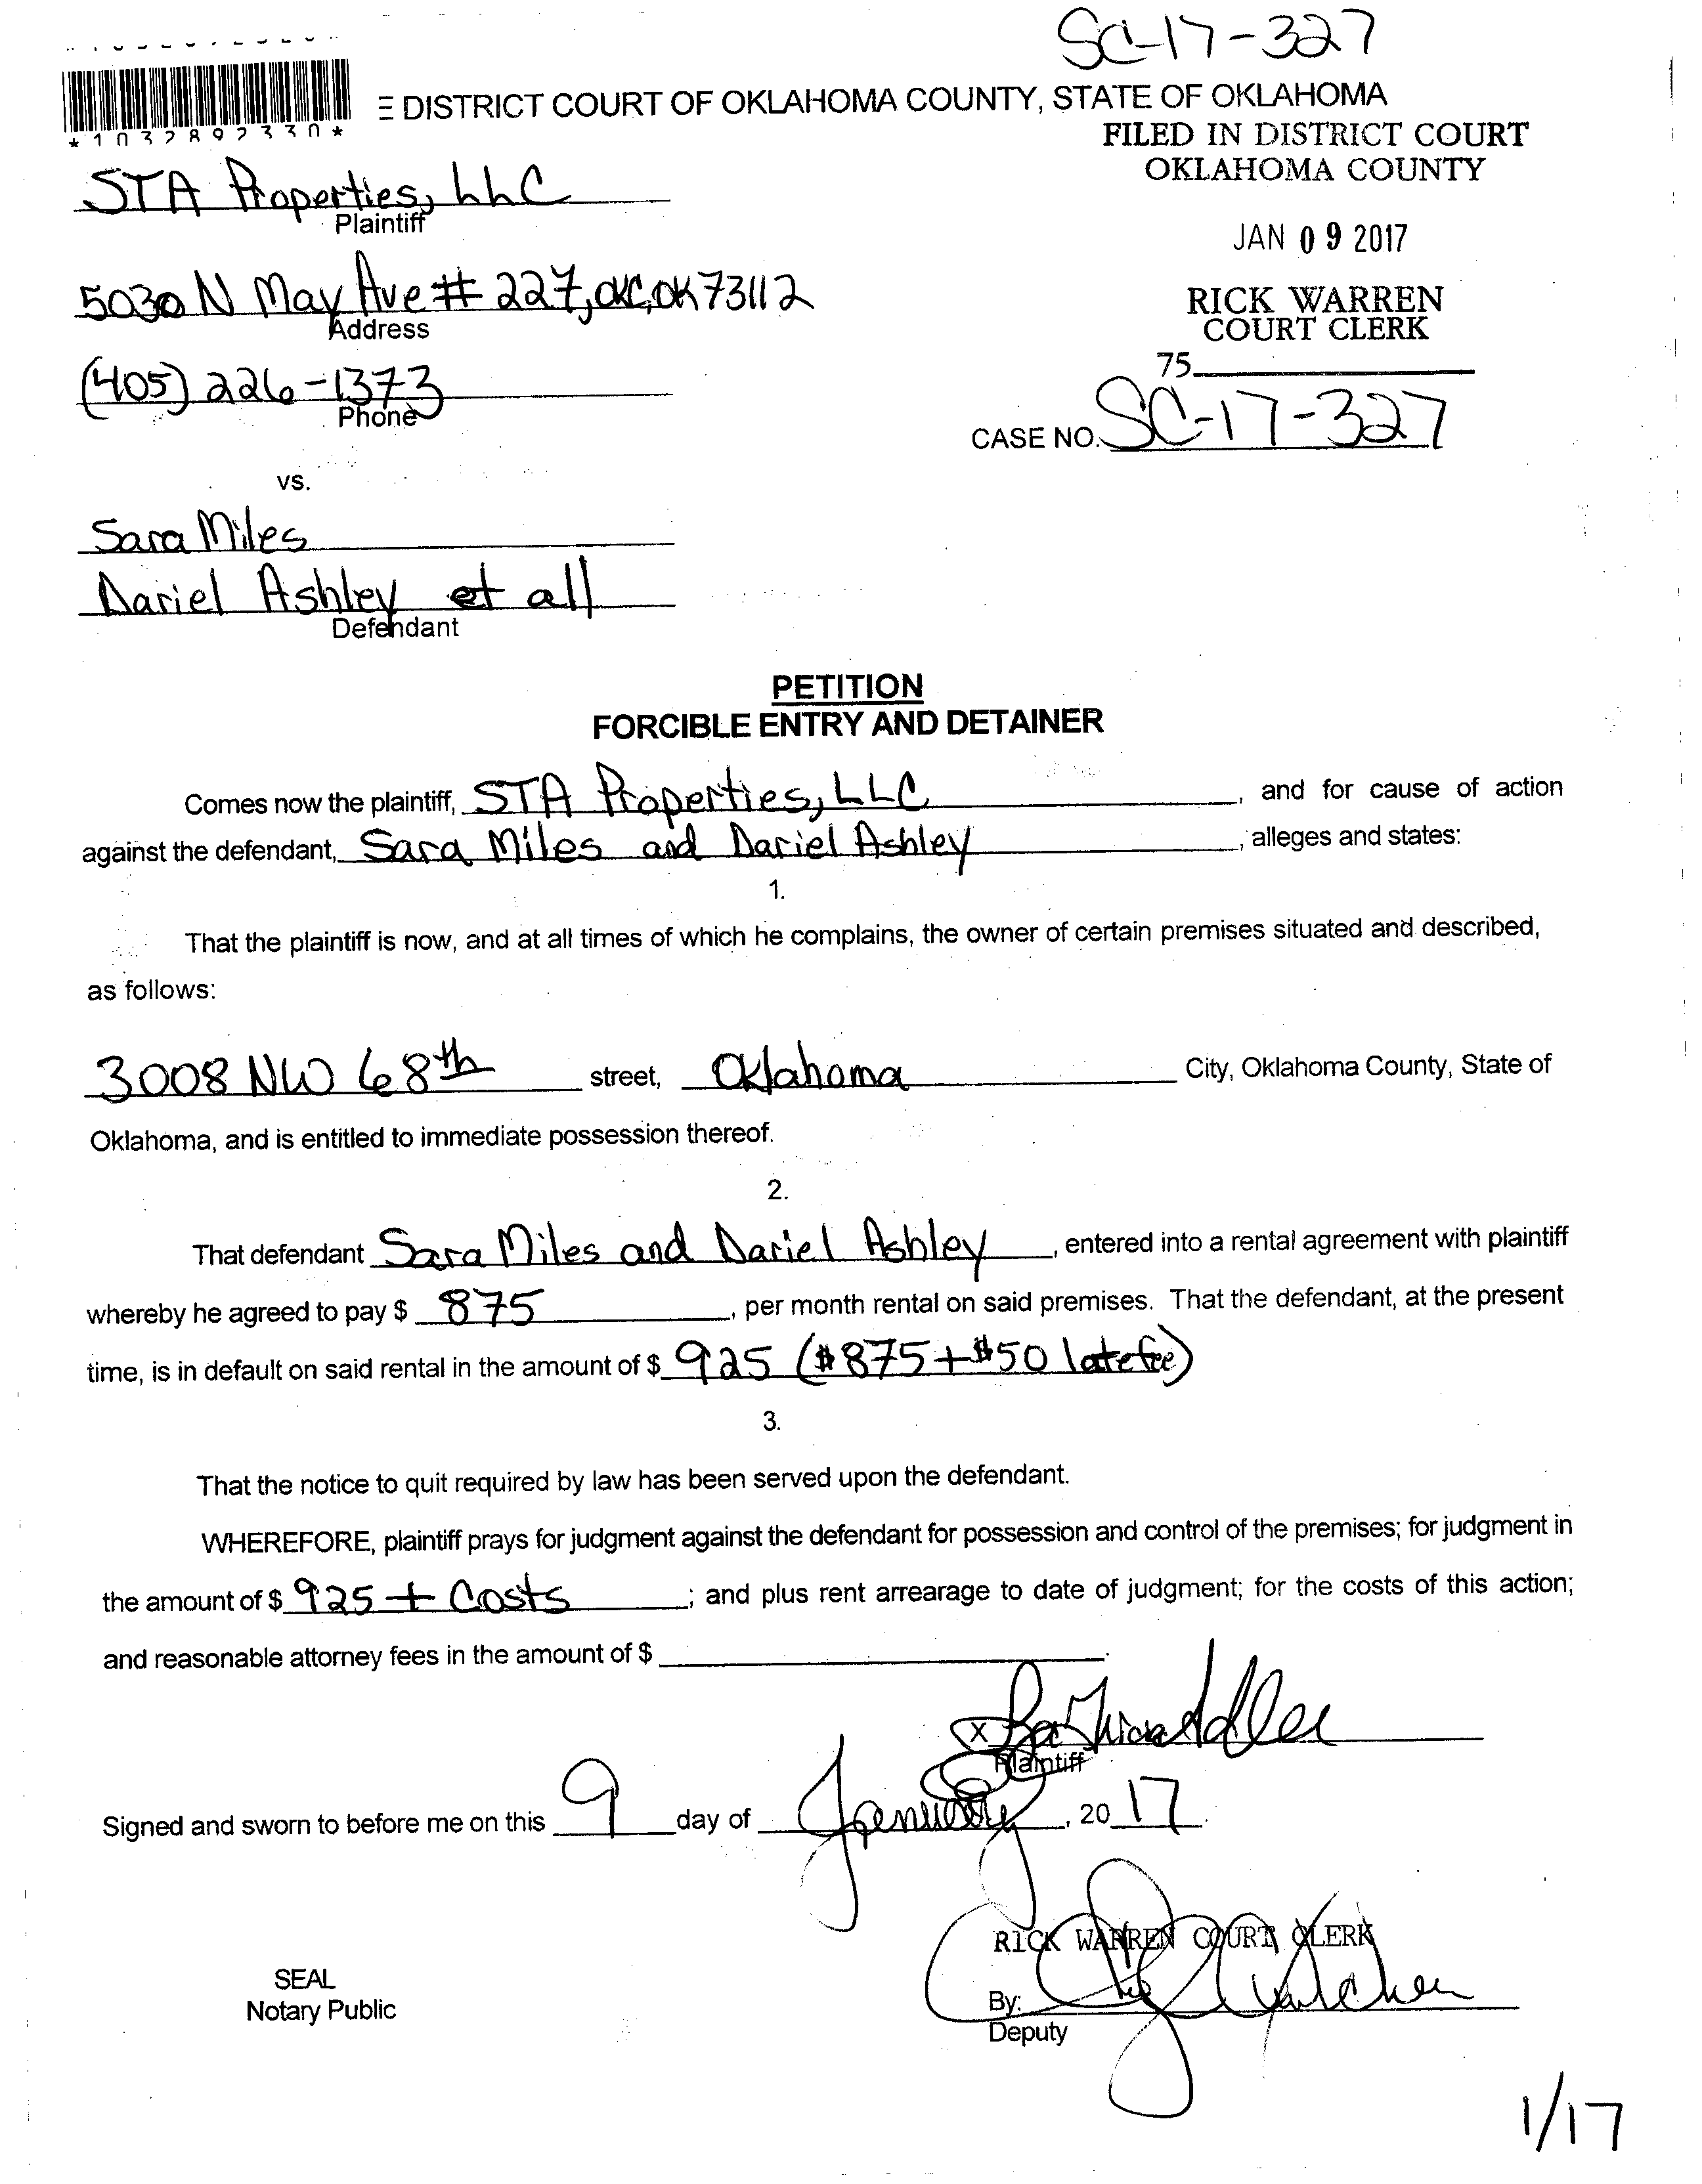 SC-17-327
E DISTRICT COURT OF OKLAHOMA COUNTY, STATE OF OKLAHOMA
*1032892330*
FILED IN DISTRICT COURT
OKLAHOMA COUNTY
STA Properties, LLC
Plaintiff
JAN 09 2017
5030 N May Ave # 227, OKC, OK 73112
Address
RICK WARREN
COURT CLERK
(405) 226-1373
Phone
75
CASE NO. SC-17-327
vs.
Sara Miles
Dariel Ashley et all
Defendant
PETITION
FORCIBLE ENTRY AND DETAINER
Comes now the plaintiff, STA Properties, LLC, and for cause of action
against the defendant, Sara Miles and Dariel Ashley, alleges and states:
1.
That the plaintiff is now, and at all times of which he complains, the owner of certain premises situated and described,
as follows:
3008 NW 68th street, Oklahoma City, Oklahoma County, State of
Oklahoma, and is entitled to immediate possession thereof.
2.
That defendant Sara Miles and Dariel Ashley, entered into a rental agreement with plaintiff
whereby he agreed to pay $ 875, per month rental on said premises. That the defendant, at the present
time, is in default on said rental in the amount of $ 925 ($875+$50 late fee)
3.
That the notice to quit required by law has been served upon the defendant.
WHEREFORE, plaintiff prays for judgment against the defendant for possession and control of the premises; for judgment in
the amount of $ 925 + Costs; and plus rent arrearage to date of judgment; for the costs of this action;
and reasonable attorney fees in the amount of $
X
Plaintiff
Signed and sworn to before me on this 9 day of January, 2017.
RICK WARREN COURT CLERK
SEAL
Notary Public
By:
Deputy
1/17